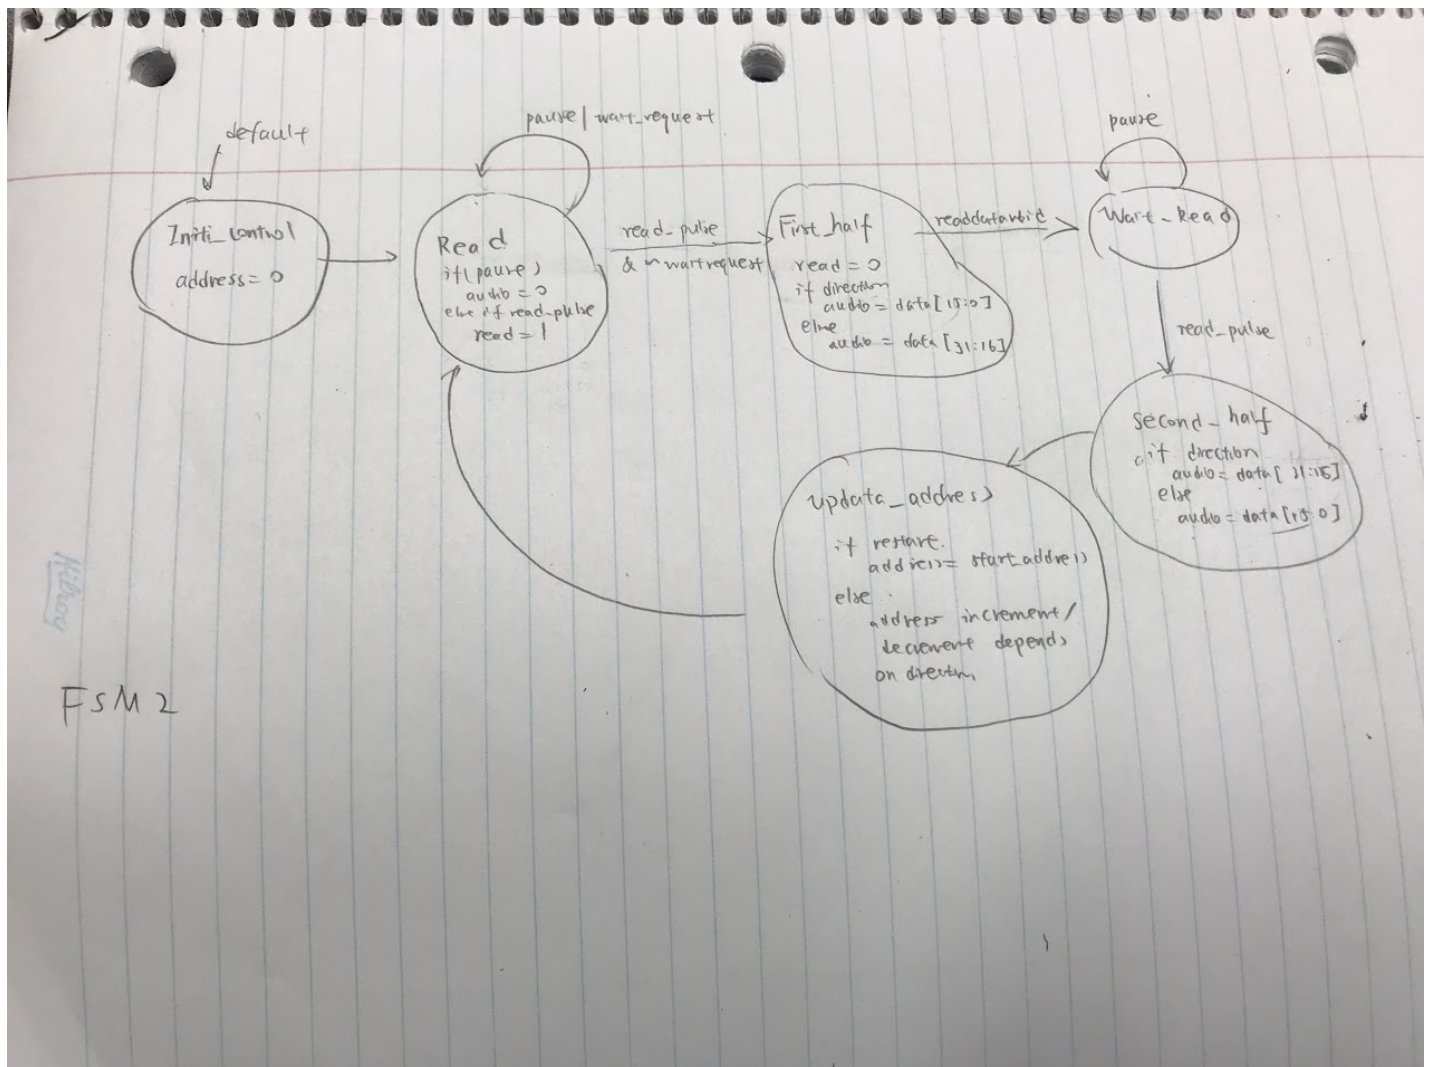 default
Initi_control
address = 0
pause | wait_request
Read
if(pause)
audio = 0
else if read_pulse
read = 1
read_pulse
& ~ waitrequest
First_half
read = 0
if direction
audio = data[15:0]
else
audio = data [31:16]
readdatavalid
pause
Wait_Read
read_pulse
Second_half
if direction
audio = data[31:15]
else
audio = data[15:0]
updata_address
if restart.
address = start_address
else
address increment/
decrement depends
on direction,
Hilroy
FSM 2